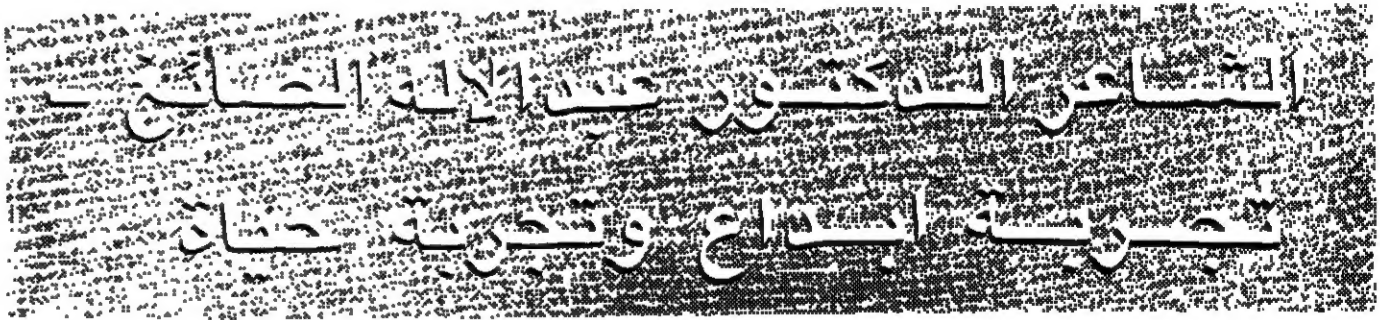 الشاعر الدكتور عبد الإله الصائغ -
تجربة ابداع وتجربة حياة